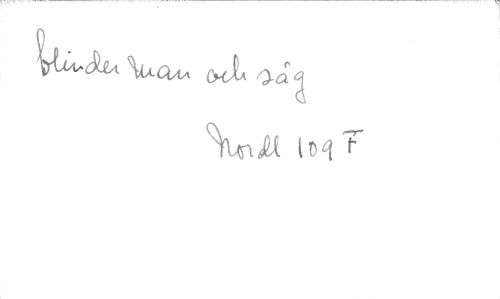 blinder man och såg
Nordl 109 F